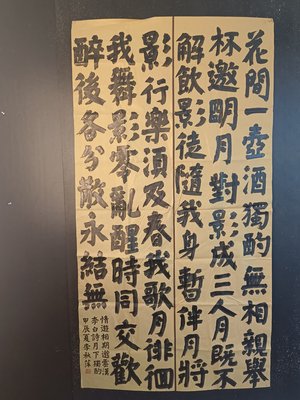 花間一壺酒獨酌無相親舉
杯邀明月對影成三人月既不
解飲影徒隨我身暫伴月將
影行樂須及春我歌月徘徊
我舞影零亂醒時同交歡
醉後各分散永結無
情遊相期邈雲漢
李白詩月下獨酌
甲辰夏李秋萍